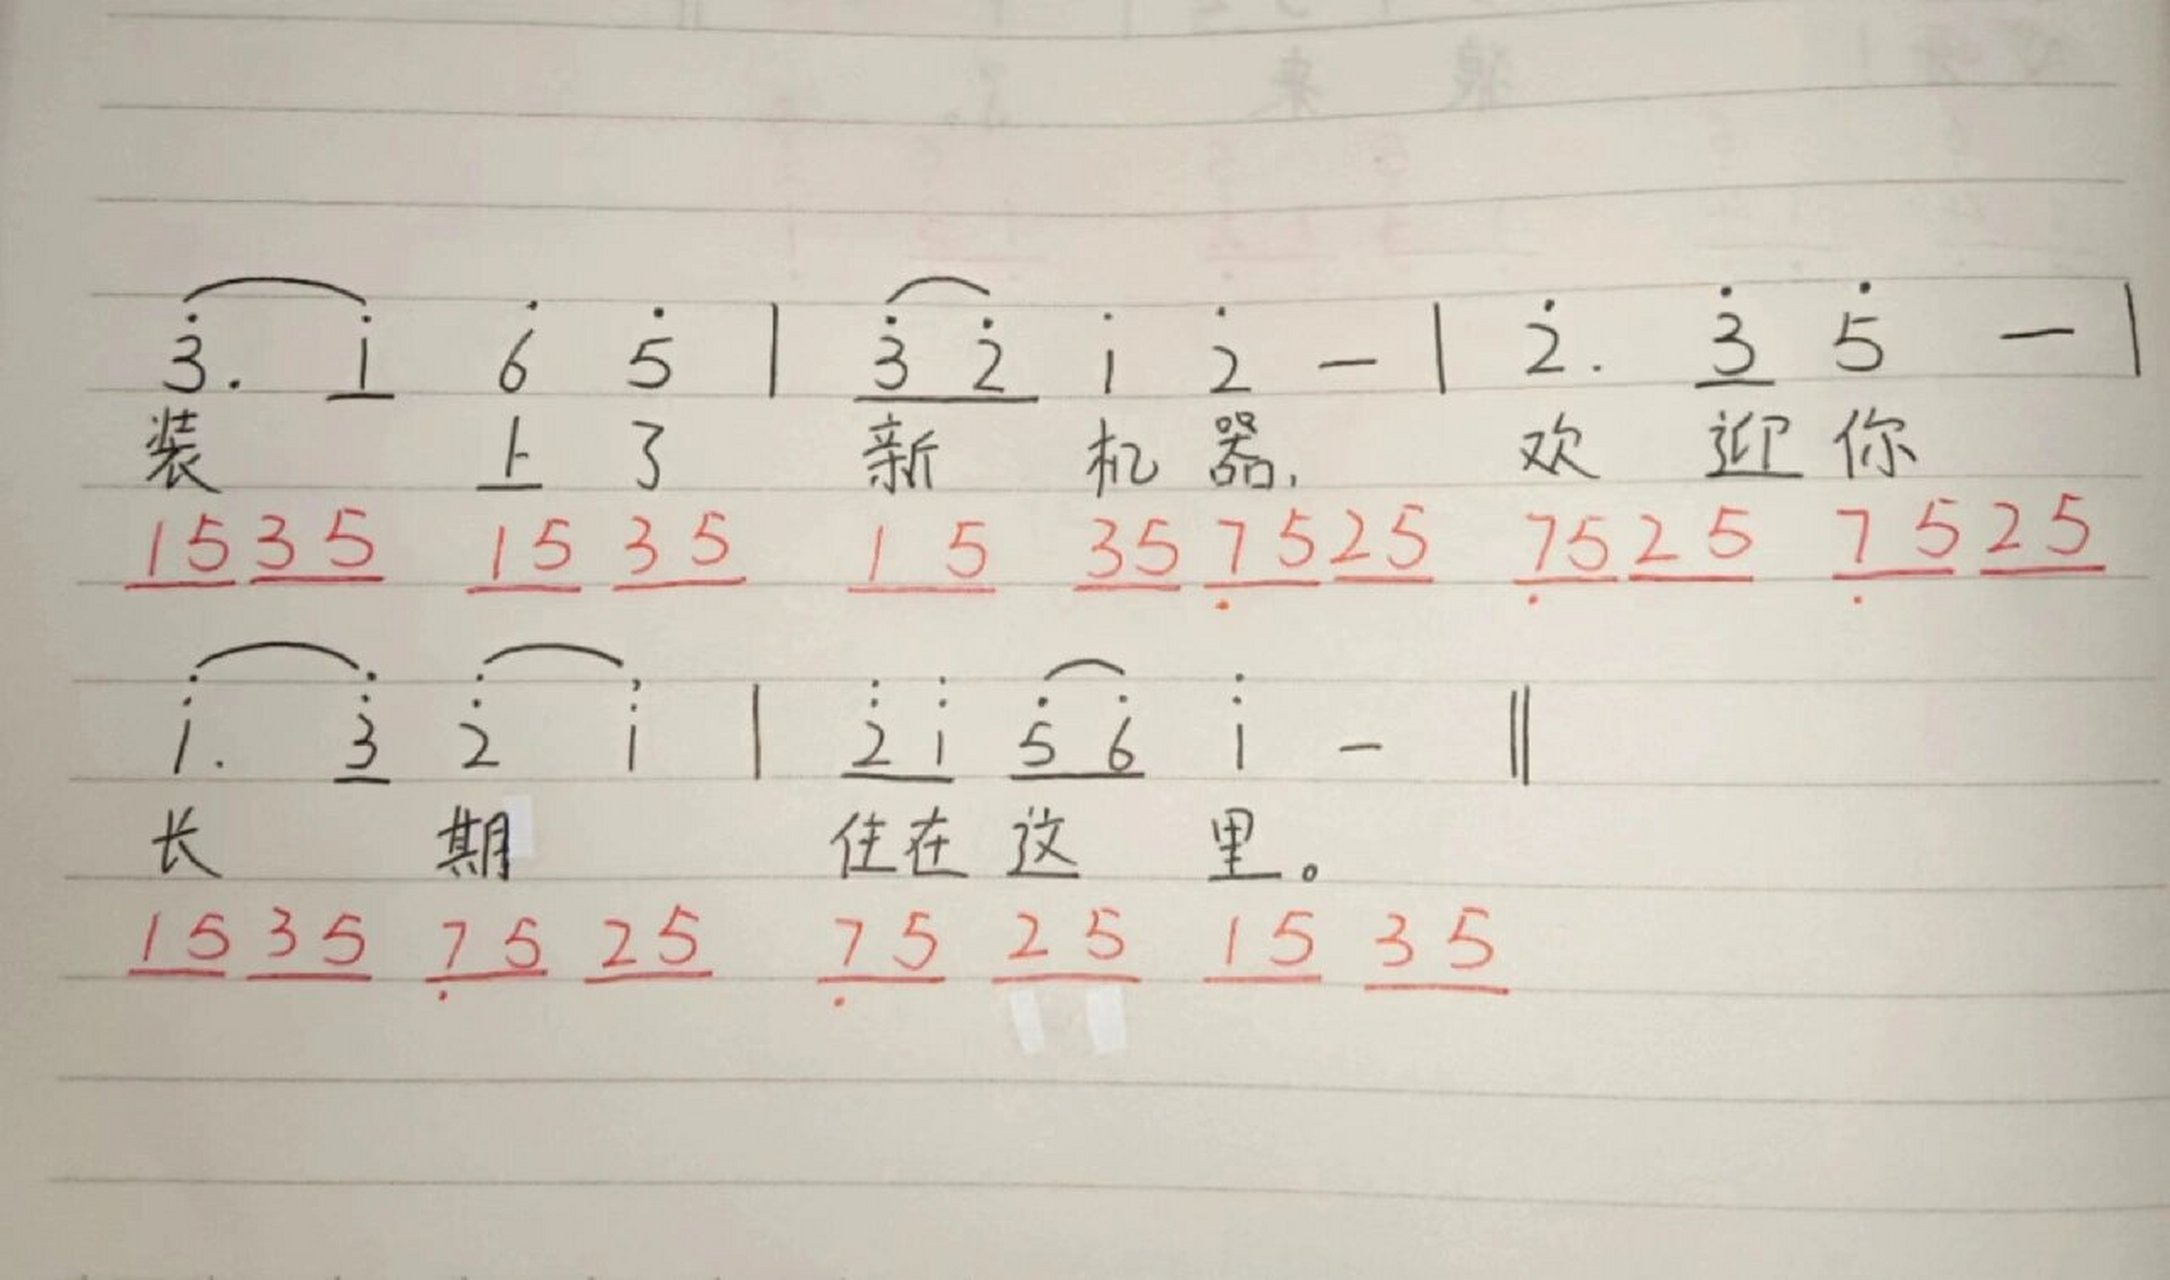 3̇. 1̇ 6̇ 5̇ | 3̇ 2̇ 1̇ 2̇ — | 2̇. 3̇ 5̇ — |
装 上 了 新 机 器, 欢 迎 你
15 35 15 35 15 35 7̣5 25 7̣5 25 7̣5 25
1̈. 3̈ 2̈ 1̈ | 2̈ 1̈ 5̇ 6̇ 1̈ — ‖
长 期 住 在 这 里。
15 35 7̣5 25 7̣5 25 15 35